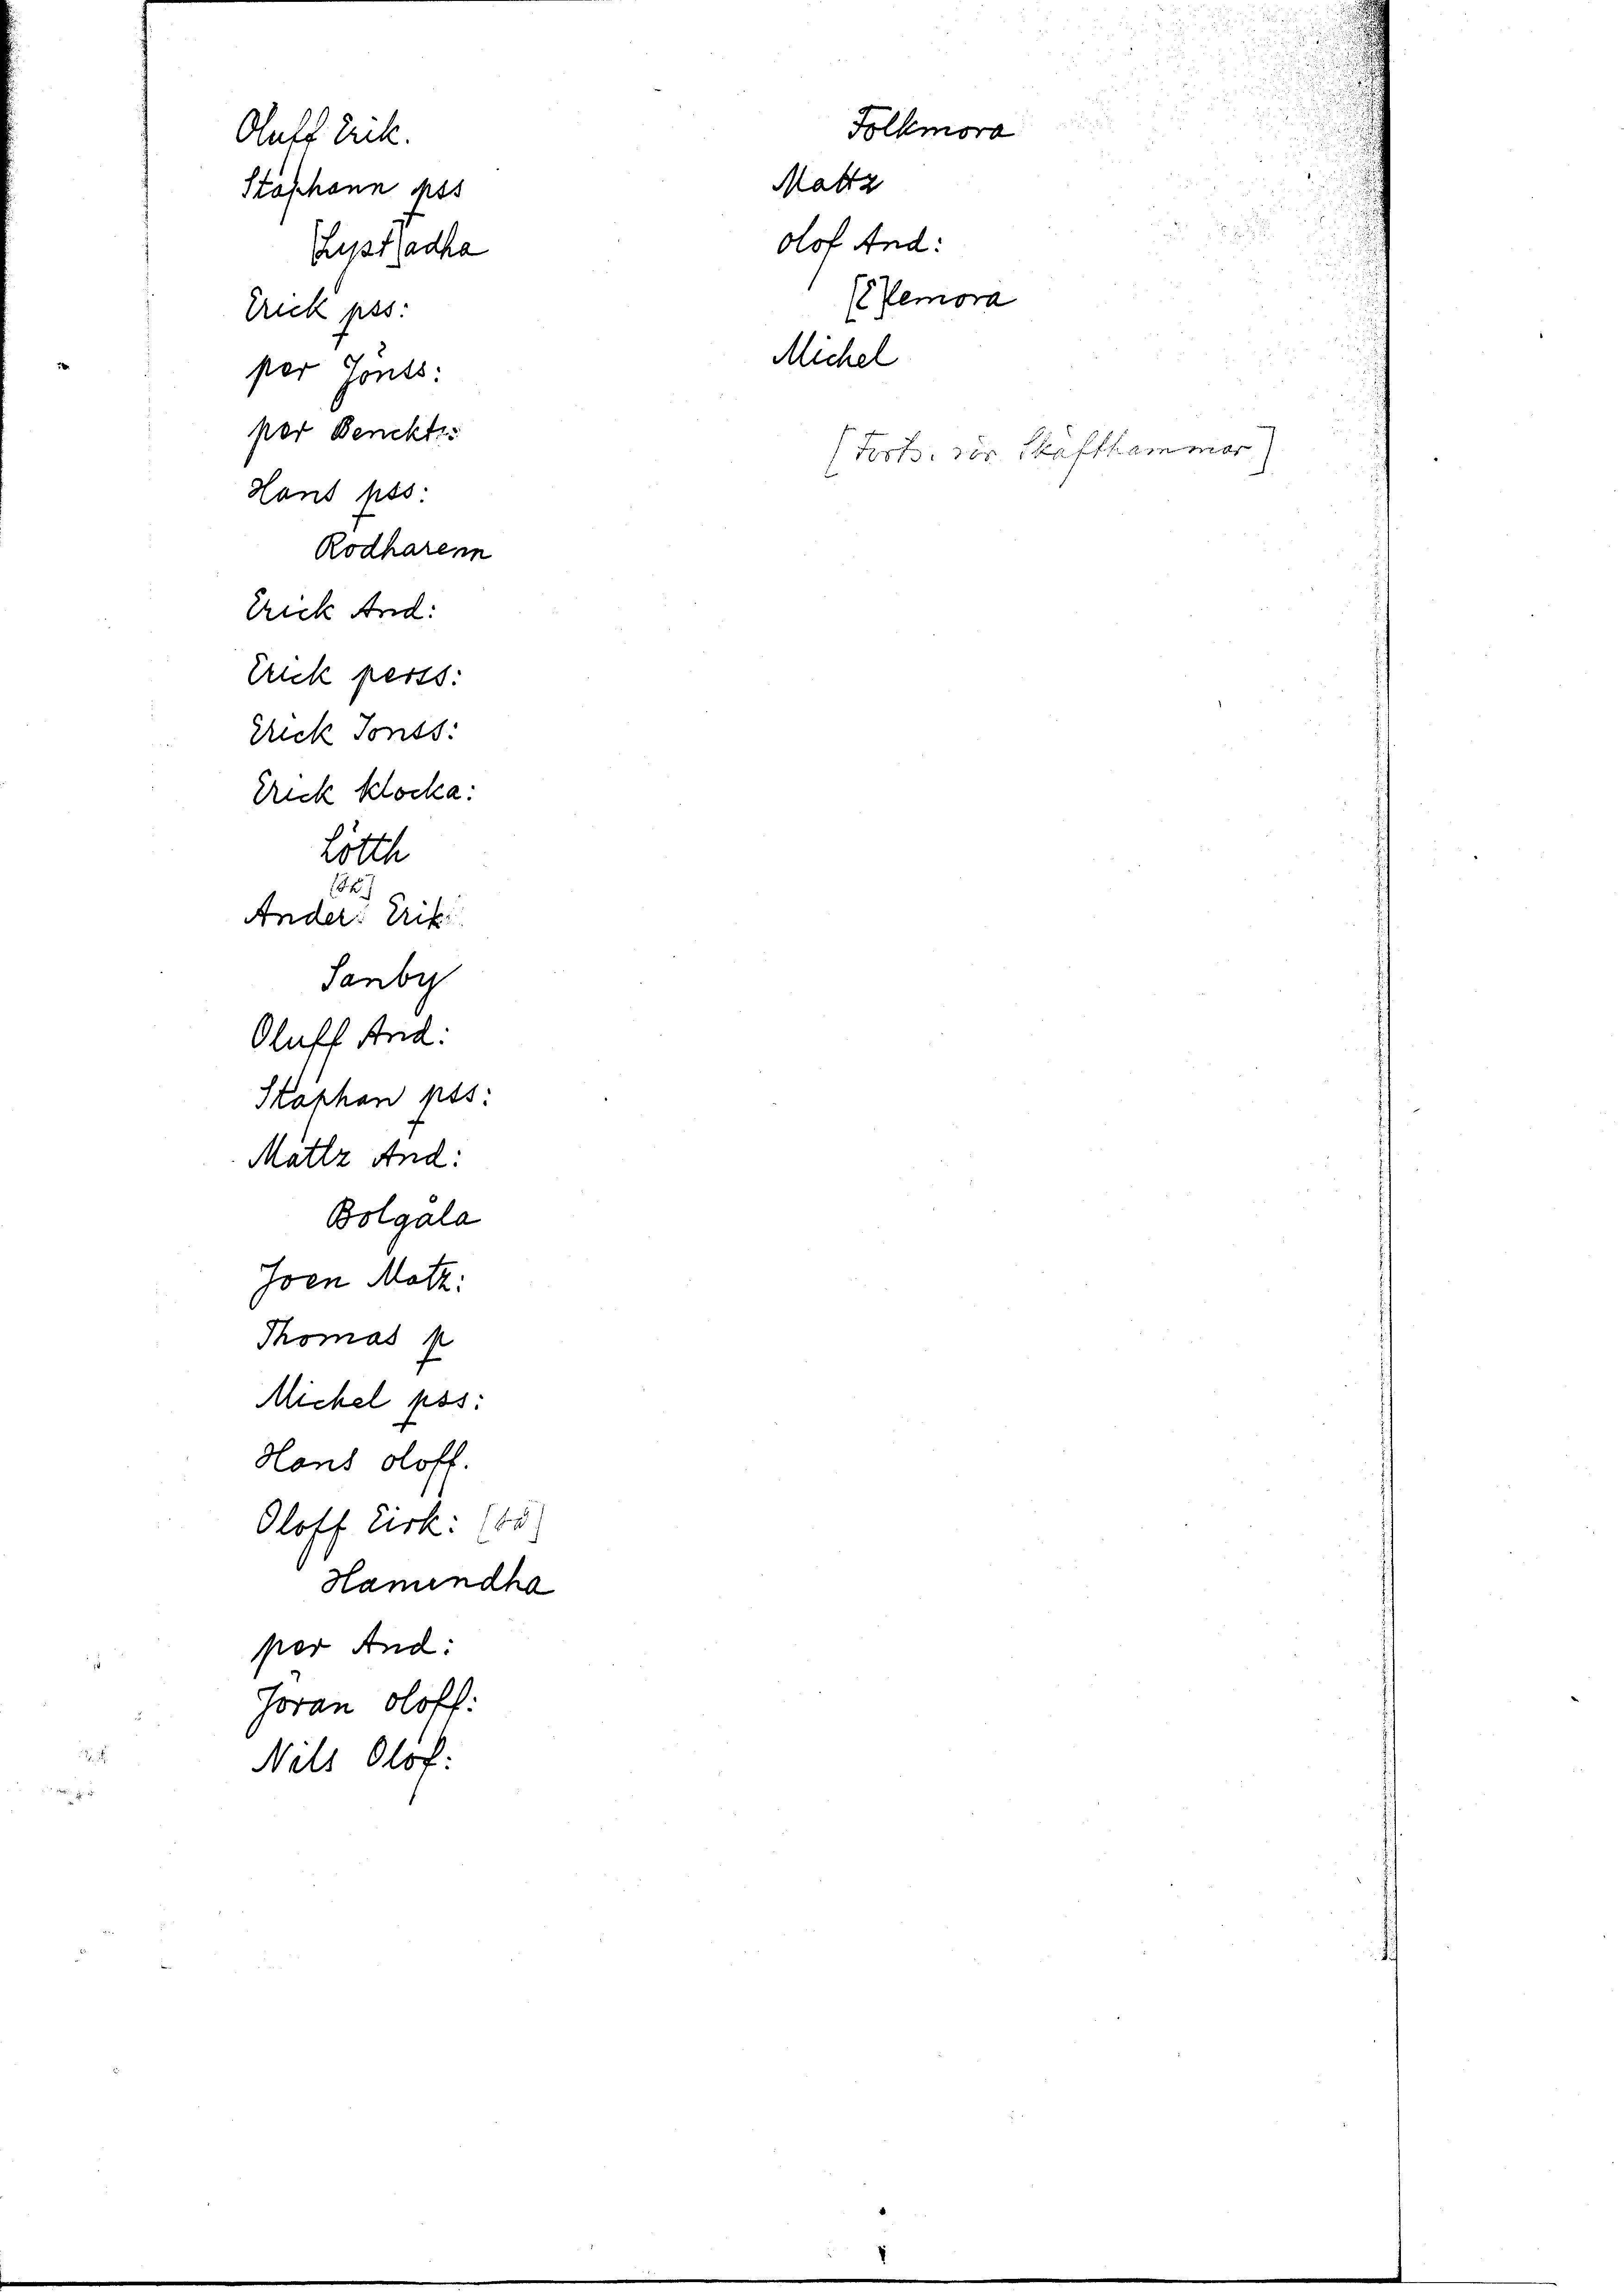 Oluff Erik.
Staphann pss
[Lyst]adha
Erick pss:
per Jönss:
per Benckts:
Hans pss:
Rodharenn
Erick And:
Erick perss:
Erick Jonss:
Erick klocka:
Lötth
Ander: Erik:
Sanby
Oluff And:
Staphan pss:
Mattz And:
Bolgåla
Joen Matz:
Thomas p
Michel pss:
Hans oloff.
Oloff Eirk:
Hamundha
per And:
Jöran oloff:
Nils Olof:
Folkmora
Mattz
olof And:
[E]lemora
Michel
(Forts. rör Skäfthammar)